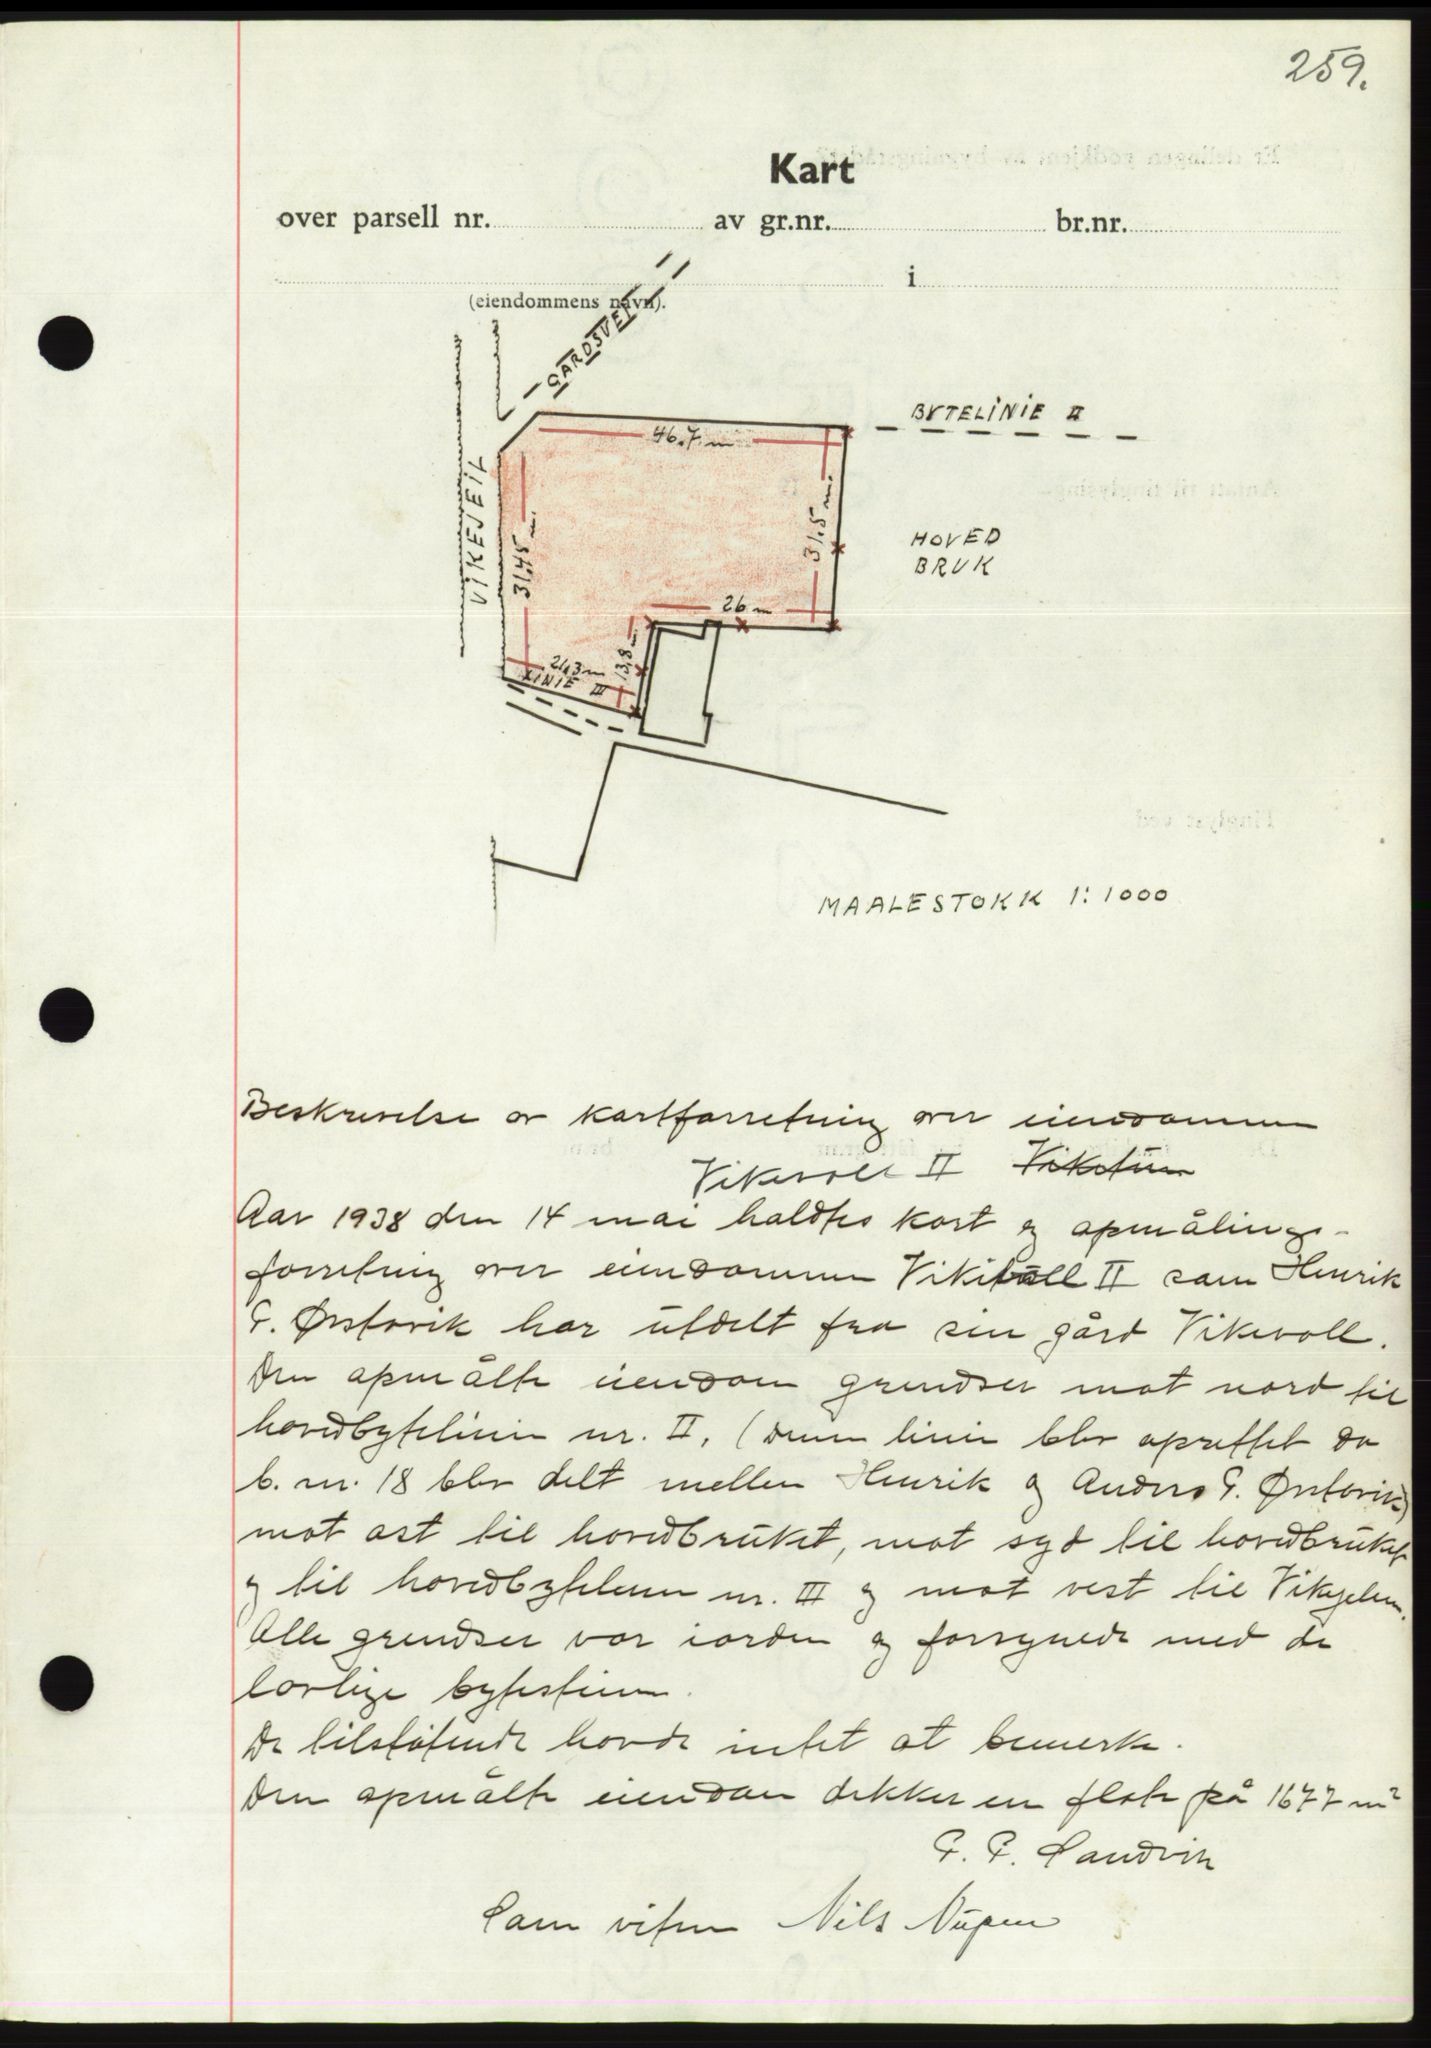 259.
Kart
over parsell nr. av gr.nr. br.nr.
i
(eiendommens navn).
GARDSVEI
BYTELINIE II
46.7 m
VIKEJEIL
31,45 m.
31.5 m.
HOVED
BRUK
26 m
13,8 m.
21,3 m
LINIE III
MAALESTOKK 1:1000
Beskrivelse av kartforretning over eiendommen
Vikevoll II Viketun
Aar 1938 den 14 mai holdtes kart og opmålings-
forretning over eiendommen Vikevoll II som Henrik
G. Ørstavik har utdelt fra sin gård Vikevoll.
Den opmålte eiendom grendser mot nord til
hovedbytelinie nr. II, (denne linie blev oprettet da
b. nr. 18 blev delt mellem Henrik og Anders G. Ørstavik)
mot ost til hovedbruket, mot syd til hovedbruket
og til hovedbytelinie nr. III og mot vest til Vikejeilen.
Alle grendser var iorden og forsynede med de
lovlige bytesteine.
De tilstøtende havde intet at bemerke.
Den opmålte eiendom dekker en flate på 1677 m²
Sandvik
Som vitne Nils Nupen